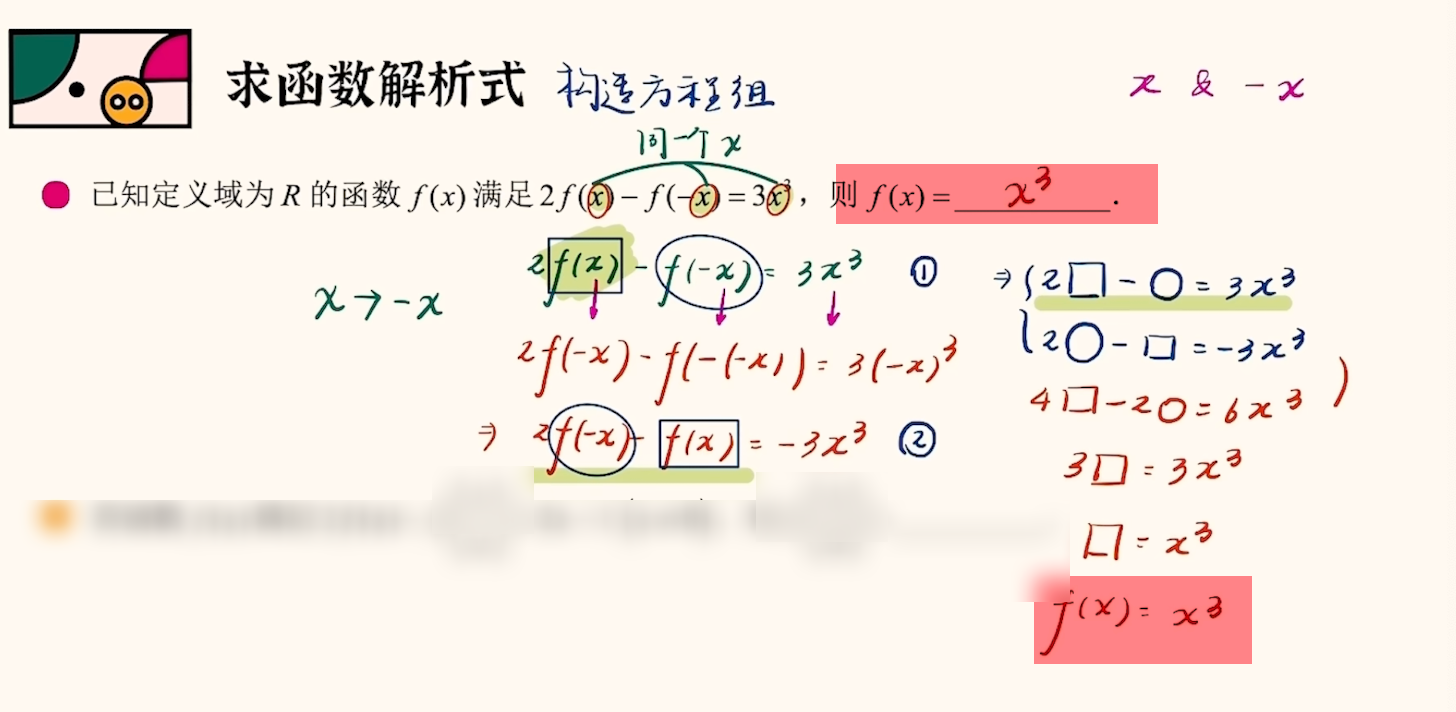 求函数解析式 构造方程组
x & -x
同一个 x
已知定义域为 R 的函数 f(x) 满足 2f(x) - f(-x) = 3x³，则 f(x) = x³ .
2f(x) - f(-x) = 3x³ ①
x → -x
2f(-x) - f(-(-x)) = 3(-x)³
⇒ 2f(-x) - f(x) = -3x³ ②
⇒ { 2□ - ○ = 3x³
2○ - □ = -3x³
4□ - 2○ = 6x³ )
3□ = 3x³
□ = x³
f(x) = x³